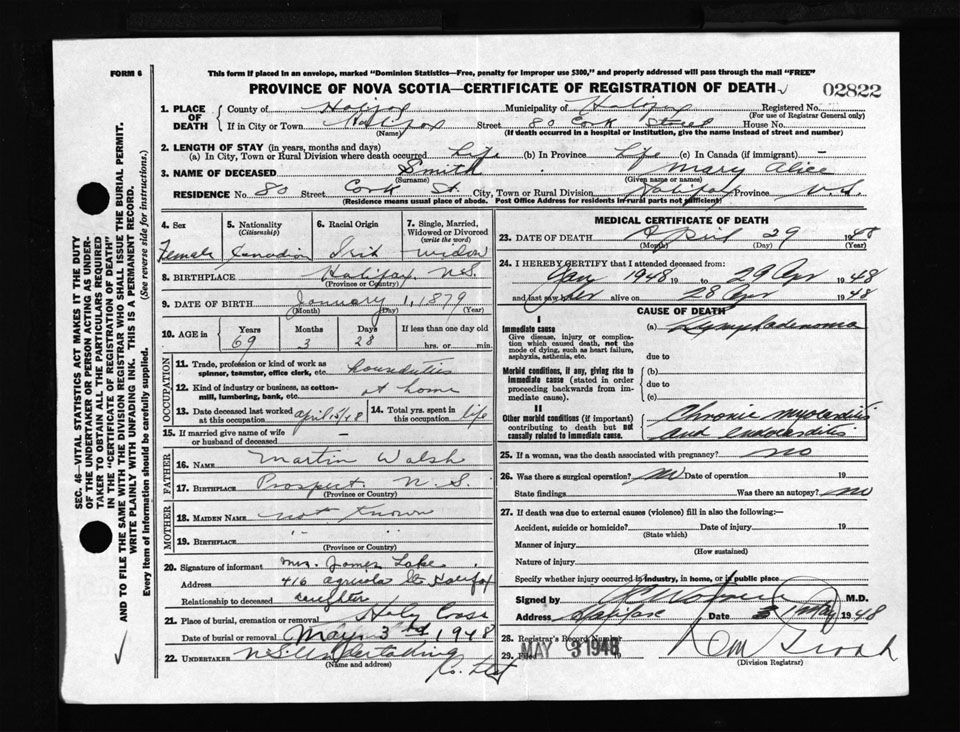 FORM 6
This form if placed in an envelope, marked "Dominion Statistics—Free, penalty for improper use $300," and properly addressed will pass through the mail "FREE"
PROVINCE OF NOVA SCOTIA—CERTIFICATE OF REGISTRATION OF DEATH
02822
1. PLACE OF DEATH
County of Halifax Municipality of Halifax Registered No.
(For use of Registrar General only)
If in City or Town Halifax Street 80 Cork Street House No.
(Name) (If death occurred in a hospital or institution, give the name instead of street and number)
2. LENGTH OF STAY (in years, months and days)
(a) In City, Town or Rural Division where death occurred Life (b) In Province Life (c) In Canada (if immigrant) —
3. NAME OF DECEASED Smith Mary Alice
(Surname) (Given name or names)
RESIDENCE No. 80 Street Cork St. City, Town or Rural Division Halifax Province N.S.
(Residence means usual place of abode. Post Office Address for residents in rural parts not sufficient)
4. Sex
Female
5. Nationality
(Citizenship)
Canadian
6. Racial Origin
Irish
7. Single, Married, Widowed or Divorced
(write the word)
widow
8. BIRTHPLACE Halifax, N.S.
(Province or Country)
9. DATE OF BIRTH January 1, 1879
(Month) (Day) (Year)
10. AGE in Years Months Days If less than one day old
69 3 28 hrs. or min.
OCCUPATION
11. Trade, profession or kind of work as
spinner, teamster, office clerk, etc.
12. Kind of industry or business, as cotton-
mill, lumbering, bank, etc. at home
13. Date deceased last worked
at this occupation April 15/48
14. Total yrs. spent in
this occupation life
15. If married give name of wife
or husband of deceased —
FATHER
16. NAME Martin Walsh
17. BIRTHPLACE Prospect N.S.
(Province or Country)
MOTHER
18. MAIDEN NAME not known
19. BIRTHPLACE " "
(Province or Country)
20. Signature of informant Mrs. James Lake
Address 416 Agricola St. Halifax
Relationship to deceased daughter
21. Place of burial, cremation or removal Holy Cross
Date of burial or removal May 3rd 1948
22. UNDERTAKER N.S. Undertaking Co. Ltd
(Name and address)
MEDICAL CERTIFICATE OF DEATH
23. DATE OF DEATH April 29 1948
(Month) (Day) (Year)
24. I HEREBY CERTIFY that I attended deceased from:
Jan 1948 19 to 29 Apr 1948
and last saw her alive on 28 Apr 1948
CAUSE OF DEATH
I
Immediate cause
Give disease, injury or complica-
tion which caused death, not the
mode of dying, such as heart failure,
asphyxia, asthenia, etc.
(a) Lymphadenoma
due to
Morbid conditions, if any, giving rise to
immediate cause (stated in order
proceeding backwards from im-
mediate cause).
(b)
due to
(c)
II
Other morbid conditions (if important)
contributing to death but not
causally related to immediate cause.
Chronic myocarditis
and endocarditis
25. If a woman, was the death associated with pregnancy? no
26. Was there a surgical operation? no Date of operation 19
State findings Was there an autopsy? no
27. If death was due to external causes (violence) fill in also the following:—
Accident, suicide or homicide? Date of injury 19
(State which)
Manner of injury
(How sustained)
Nature of injury
Specify whether injury occurred in industry, in home, or in public place
Signed by M.D.
Address Halifax Date 3 May 1948
28. Registrar's Record Number
29. Filed MAY 3 1948
(Division Registrar)
SEC. 46—VITAL STATISTICS ACT MAKES IT THE DUTY
OF THE UNDERTAKER OR PERSON ACTING AS UNDER-
TAKER TO OBTAIN ALL THE PARTICULARS REQUIRED
IN THE "CERTIFICATE OF REGISTRATION OF DEATH"
AND TO FILE THE SAME WITH THE DIVISION REGISTRAR WHO SHALL ISSUE THE BURIAL PERMIT.
WRITE PLAINLY WITH UNFADING INK. THIS IS A PERMANENT RECORD.
Every item of information should be carefully supplied. (See reverse side for instructions.)